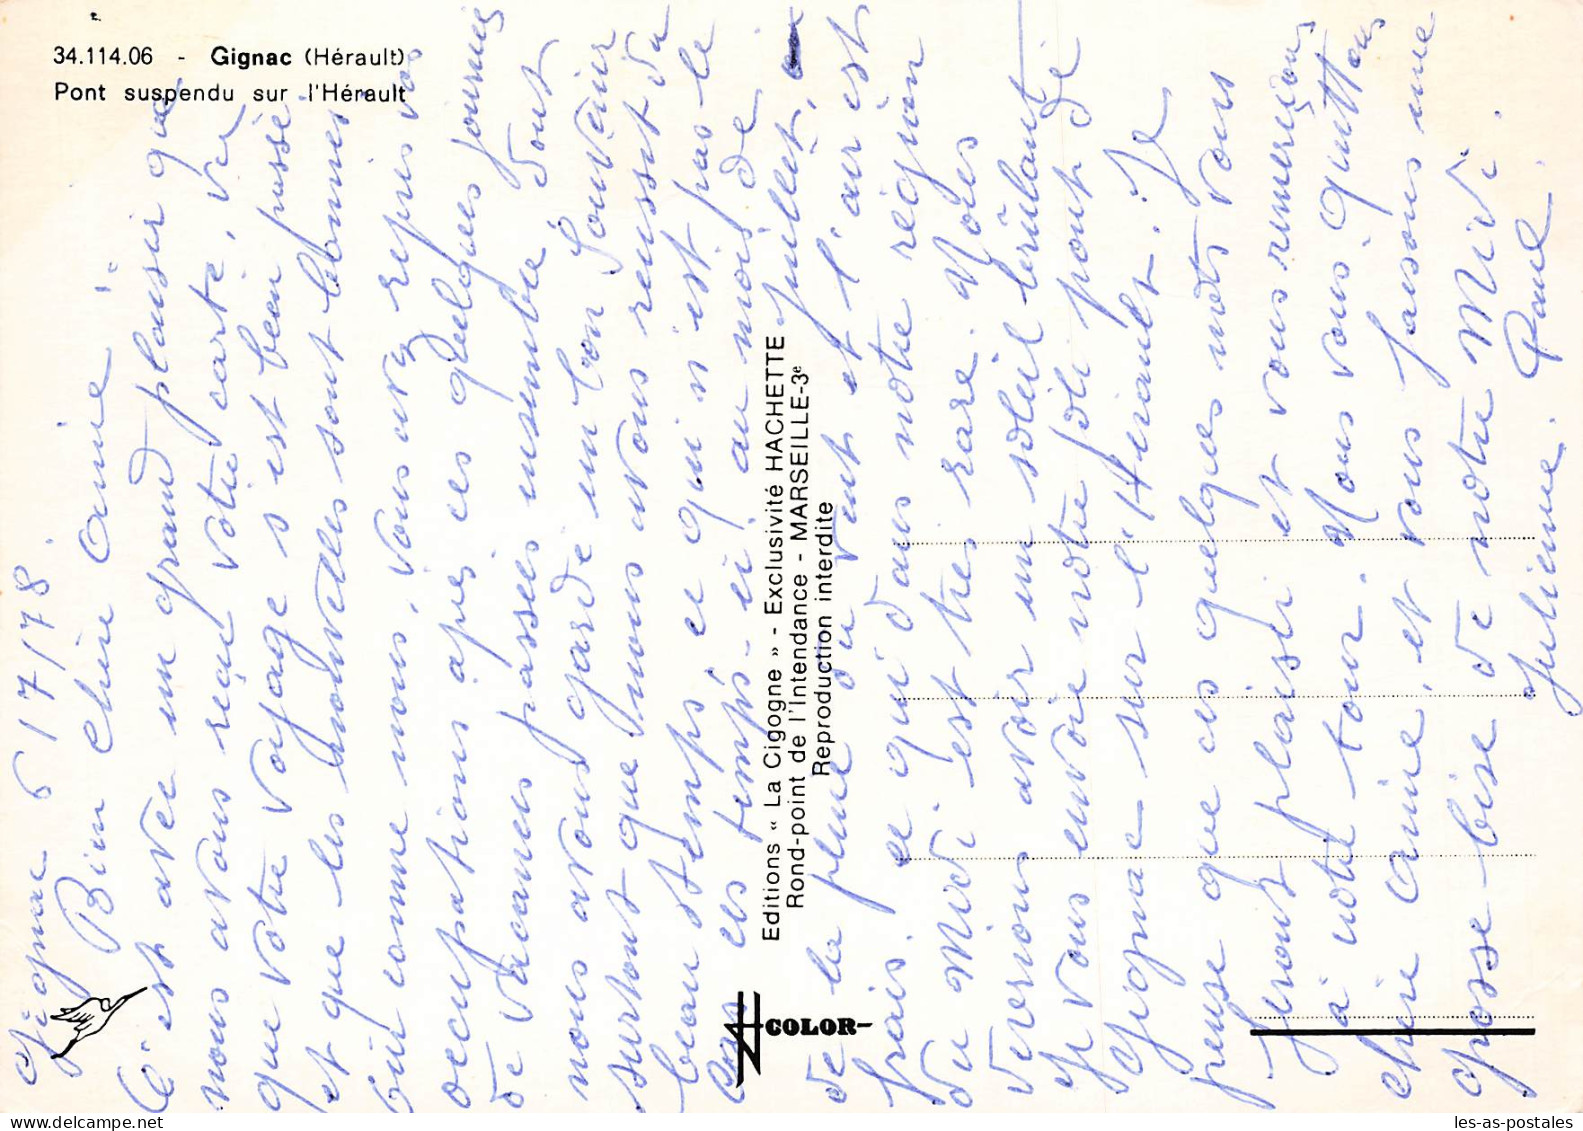 34.114.06 - Gignac (Hérault)
Pont suspendu sur l'Hérault
Gignac 6/7/78
Bien chère Aimée
C'est avec un grand plaisir que
nous avons reçu votre carte, vu
que votre voyage s'est bien passé
et que les nouvelles sont bonnes
oui comme nous, vous avez repris vos
occupations après ces quelques journées
de vacances passées ensemble dont
nous avons gardé un bon souvenir
surtout que nous avons reussit du
beau temps ce qui n'est pas le
cas ces temps-ci au mois de
Juillet,
de la pluie du vent et l'air est
frais. ce qui dans notre région
du Midi est très rare. Nous
verrons avoir un soleil brûlant
Je vous envoie notre joli pont de
Gignac sur l'Hérault. Je
pense que ces quelques mots vous
feront plaisir et vous remercions
à notre tour. Nous vous quittons
chère Aimée, et vous faisons une
grosse bise de notre Midi.
Julienne. Paul.
Editions « La Cigogne » - Exclusivité HACHETTE
Rond-point de l'Intendance - MARSEILLE-3e
Reproduction interdite
COLOR
les-as-postales